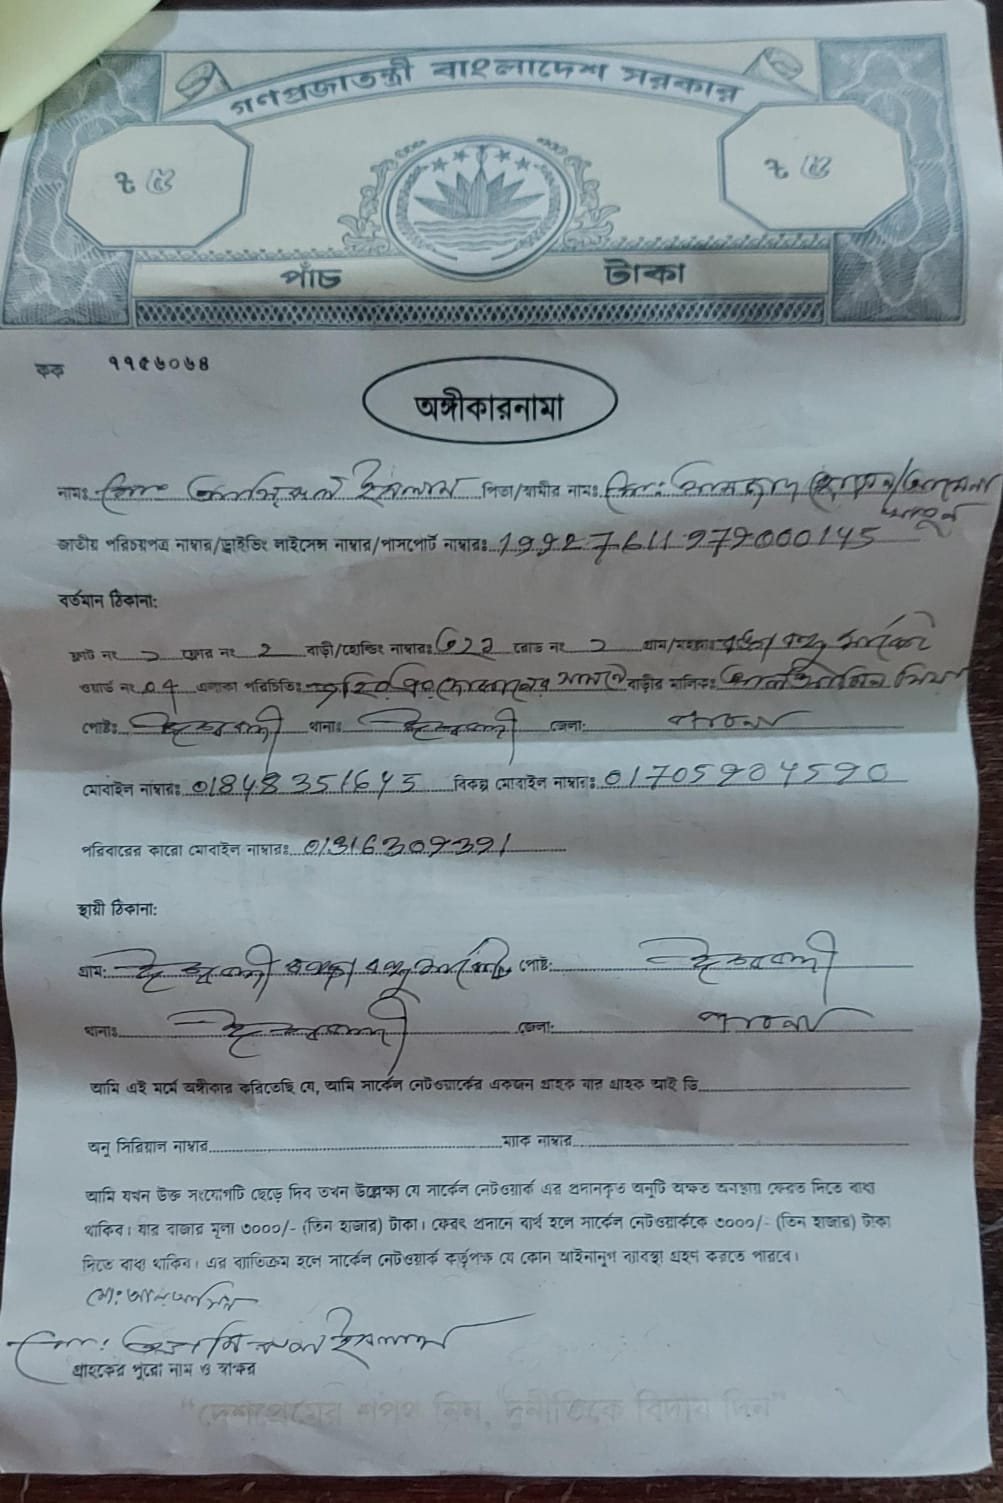 গণপ্রজাতন্ত্রী বাংলাদেশ সরকার
৳ ৫ ৳ ৫
পাঁচ টাকা
কক ৭৭৫৬০৬৪
অঙ্গীকারনামা
নামঃ মোঃ ইসলাম পিতা/স্বামীর নামঃ মোঃ
জাতীয় পরিচয়পত্র নাম্বার/ড্রাইভিং লাইসেন্স নাম্বার/পাসপোর্ট নাম্বারঃ 19927611272000145
বর্তমান ঠিকানা:
ফ্লাট নং ২ ফ্লোর নং 2 বাড়ী/হোল্ডিং নাম্বারঃ রোড নং ২ গ্রাম/মহল্লাঃ
ওয়ার্ড নং 04 এলাকা পরিচিতিঃ বাড়ীর মালিকঃ
পোষ্টঃ ঈশ্বরদী থানাঃ ঈশ্বরদী জেলা: পাবনা
মোবাইল নাম্বারঃ 01848351645 বিকল্প মোবাইল নাম্বারঃ
পরিবারের কারো মোবাইল নাম্বারঃ
স্থায়ী ঠিকানা:
গ্রাম: ঈশ্বরদী পোষ্ট: ঈশ্বরদী
থানাঃ ঈশ্বরদী জেলা: পাবনা
আমি এই মর্মে অঙ্গীকার করিতেছি যে, আমি সার্কেল নেটওয়ার্কের একজন গ্রাহক যার গ্রাহক আই ডি
অনু সিরিয়াল নাম্বার ম্যাক নাম্বার
আমি যখন উক্ত সংযোগটি ছেড়ে দিব তখন উল্লেক্ষ্য যে সার্কেল নেটওয়ার্ক এর প্রদানকৃত অনুটি অক্ষত অবস্থায় ফেরত দিতে বাধ্য
থাকিব। যার বাজার মূল্য ৩০০০/- (তিন হাজার) টাকা। ফেরৎ প্রদানে ব্যর্থ হলে সার্কেল নেটওয়ার্ককে ৩০০০/- (তিন হাজার) টাকা
দিতে বাধ্য থাকিব। এর ব্যতিক্রম হলে সার্কেল নেটওয়ার্ক কর্তৃপক্ষ যে কোন আইনানুগ ব্যবস্থা গ্রহণ করতে পারবে।
মোঃ
মোঃ ইসলাম
গ্রাহকের পুরো নাম ও স্বাক্ষর
"দেশপ্রেমের শপথ নিন, দুর্নীতিকে বিদায় দিন"